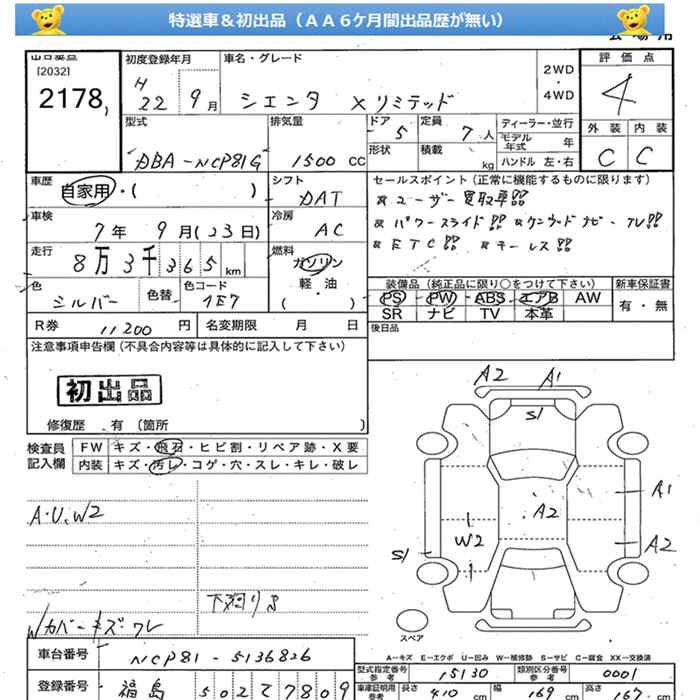 特選車＆初出品（ＡＡ６ケ月間出品歴が無い）
出品番号
[2032]
2178
初度登録年月
H 22 9月
車名・グレード
シエンタ Xリミテッド
2WD
・
4WD
評価点
4
外装 内装
C C
型式
DBA-NCP81G
排気量
1500 CC
ドア 5
形状
定員 7人
積載 kg
ディーラー・並行
モデル年式 年
ハンドル 左・右
車歴
自家用・( )
シフト
DAT
セールスポイント (正常に機能するものに限ります)
ユーザー買取車!!
パワースライド!! ケンウッドナビ-TV!!
ETC!! キーレス!!
車検
7年 9月(23日)
冷房
AC
走行
8万3千365km
燃料
ガソリン
軽・油
( )
色
シルバー
色替
色コード
1E7
装備品 (純正品に限り○をつけて下さい)
PS PW ABS エアB AW
SR ナビ TV 本革
新車保証書
有・無
R券 11200円
名変期限 月 日
後日品
注意事項申告欄 (不具合内容等は具体的に記入して下さい)
初出品
修復歴 有 〔箇所 〕
検査員
記入欄
FW キズ・飛石・ヒビ割・リペア跡・X要
内装 キズ・汚レ・コゲ・穴・スレ・キレ・破レ
A・U、W2
下廻りS
Wカバーキズワレ
A2 A1
S1
A2
A1
W2
A2
S1
スペア
A―キズ E―エクボ U―凹み W―補修跡 S―サビ C―腐食 XX―交換済
車台番号
NCP81-5136826
登録番号
福島 502 て 7809
型式指定番号
参考
15130
類別区分番号
参考
0001
車庫証明用
参考
長さ 410 cm
幅 169 cm
高さ 167 cm